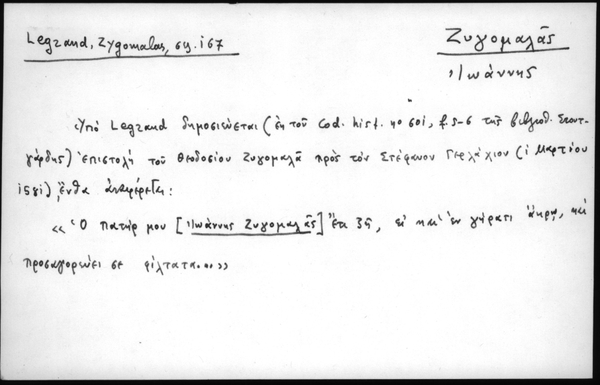 Legrand, Zygomalas, ση. 167
Ζυγομαλᾶς
Ἰωάννης
Ὑπὸ Legrand δημοσιεύεται (ἐκ τοῦ Cod. hist. no 601, f. 5-6 τῆς βιβλιοθ. Στουτ-
γάρδης) ἐπιστολὴ τοῦ Θεοδοσίου Ζυγομαλᾶ πρὸς τὸν Στέφανον Γερλάχιον (1 Μαρτίου
1581), ἔνθα ἀναφέρεται:
«Ὁ πατήρ μου [Ἰωάννης Ζυγομαλᾶς] ἔτι ζῆ, εἰ καὶ ἐν γήρατι ἄκρῳ, καὶ
προσαγορεύει σε φίλτατα...»